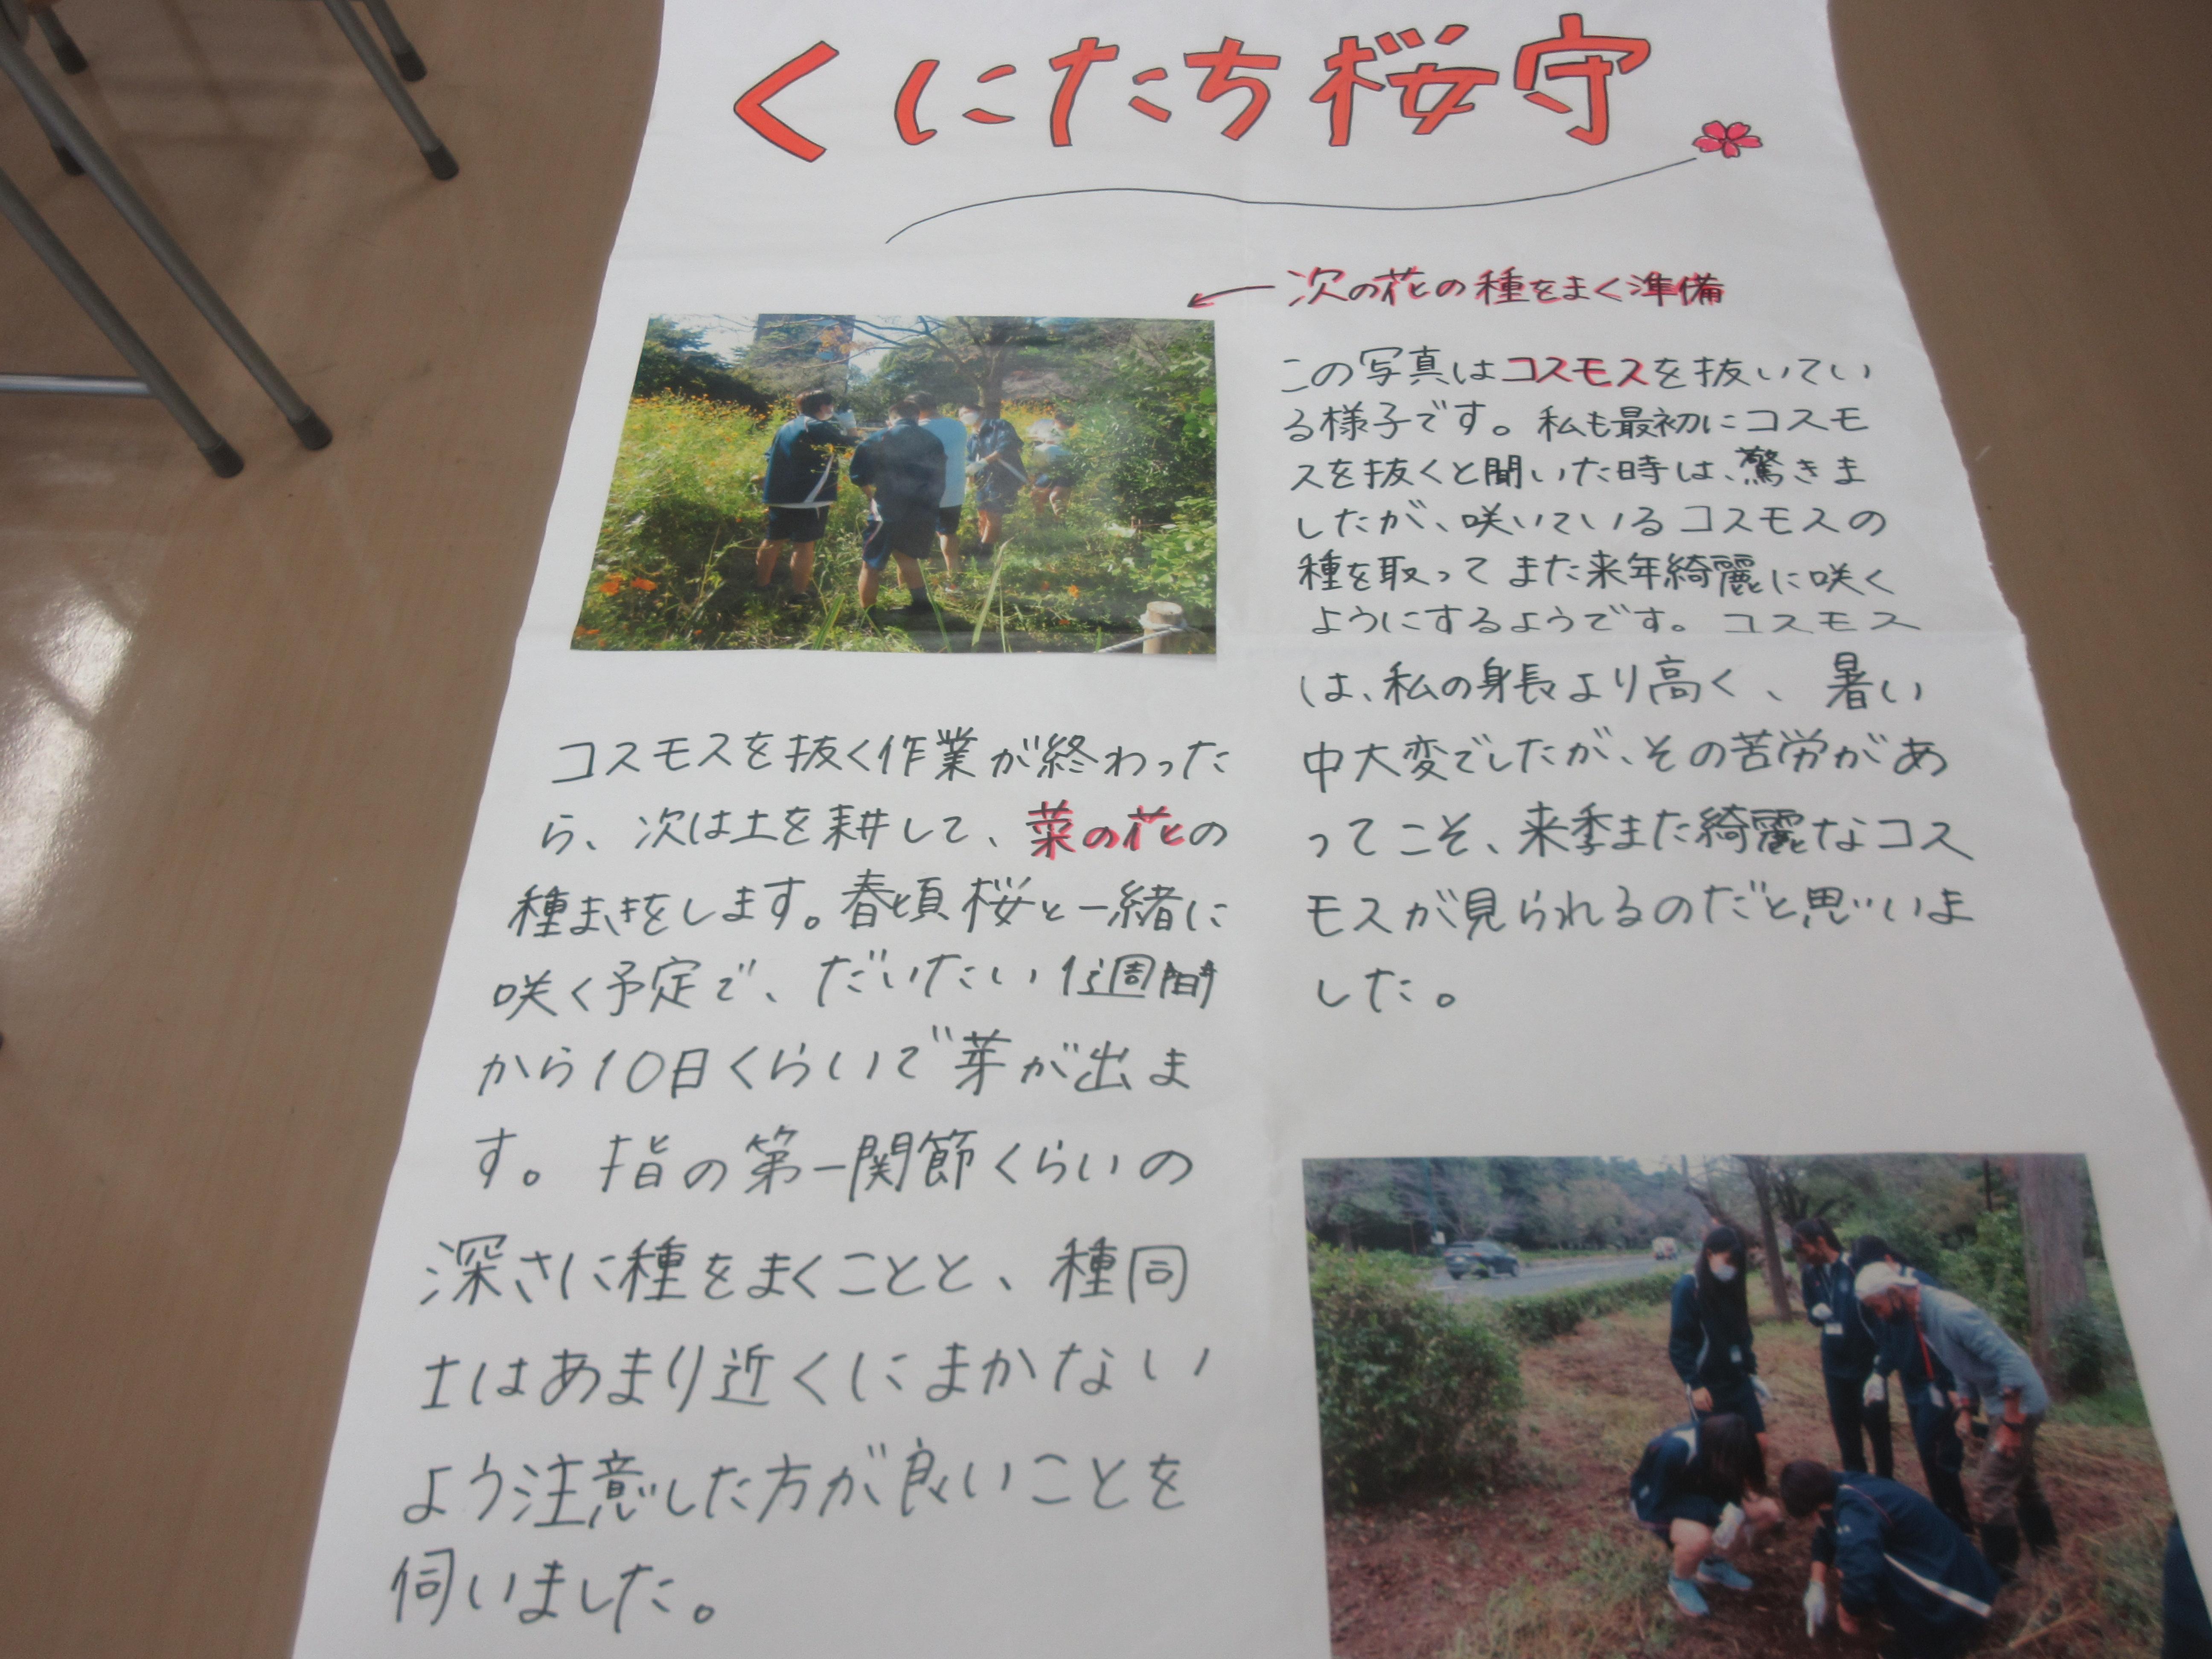 くにたち桜守
次の花の種をまく準備
この写真はコスモスを抜いてい
る様子です。私も最初にコスモ
スを抜くと聞いた時は、驚きま
したが、咲いているコスモスの
種を取ってまた来年綺麗に咲く
ようにするようです。コスモス
は、私の身長より高く、暑い
中大変でしたが、その苦労があ
ってこそ、来季また綺麗なコス
モスが見られるのだと思いま
した。
コスモスを抜く作業が終わった
ら、次は土を耕して、菜の花の
種まきをします。春頃桜と一緒に
咲く予定で、だいたい1週間
から10日くらいで芽が出ま
す。指の第一関節くらいの
深さに種をまくことと、種同
士はあまり近くにまかない
よう注意した方が良いことを
伺いました。